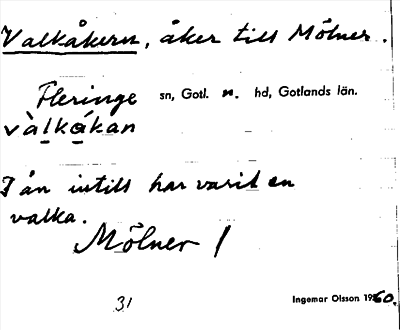 Valkåkern, åker till Mölner.
Fleringe sn, Gotl. n. hd, Gotlands län.
vàlkákan
I ån intill har varit en
valka.
Mölner /
31
Ingemar Olsson 1960.